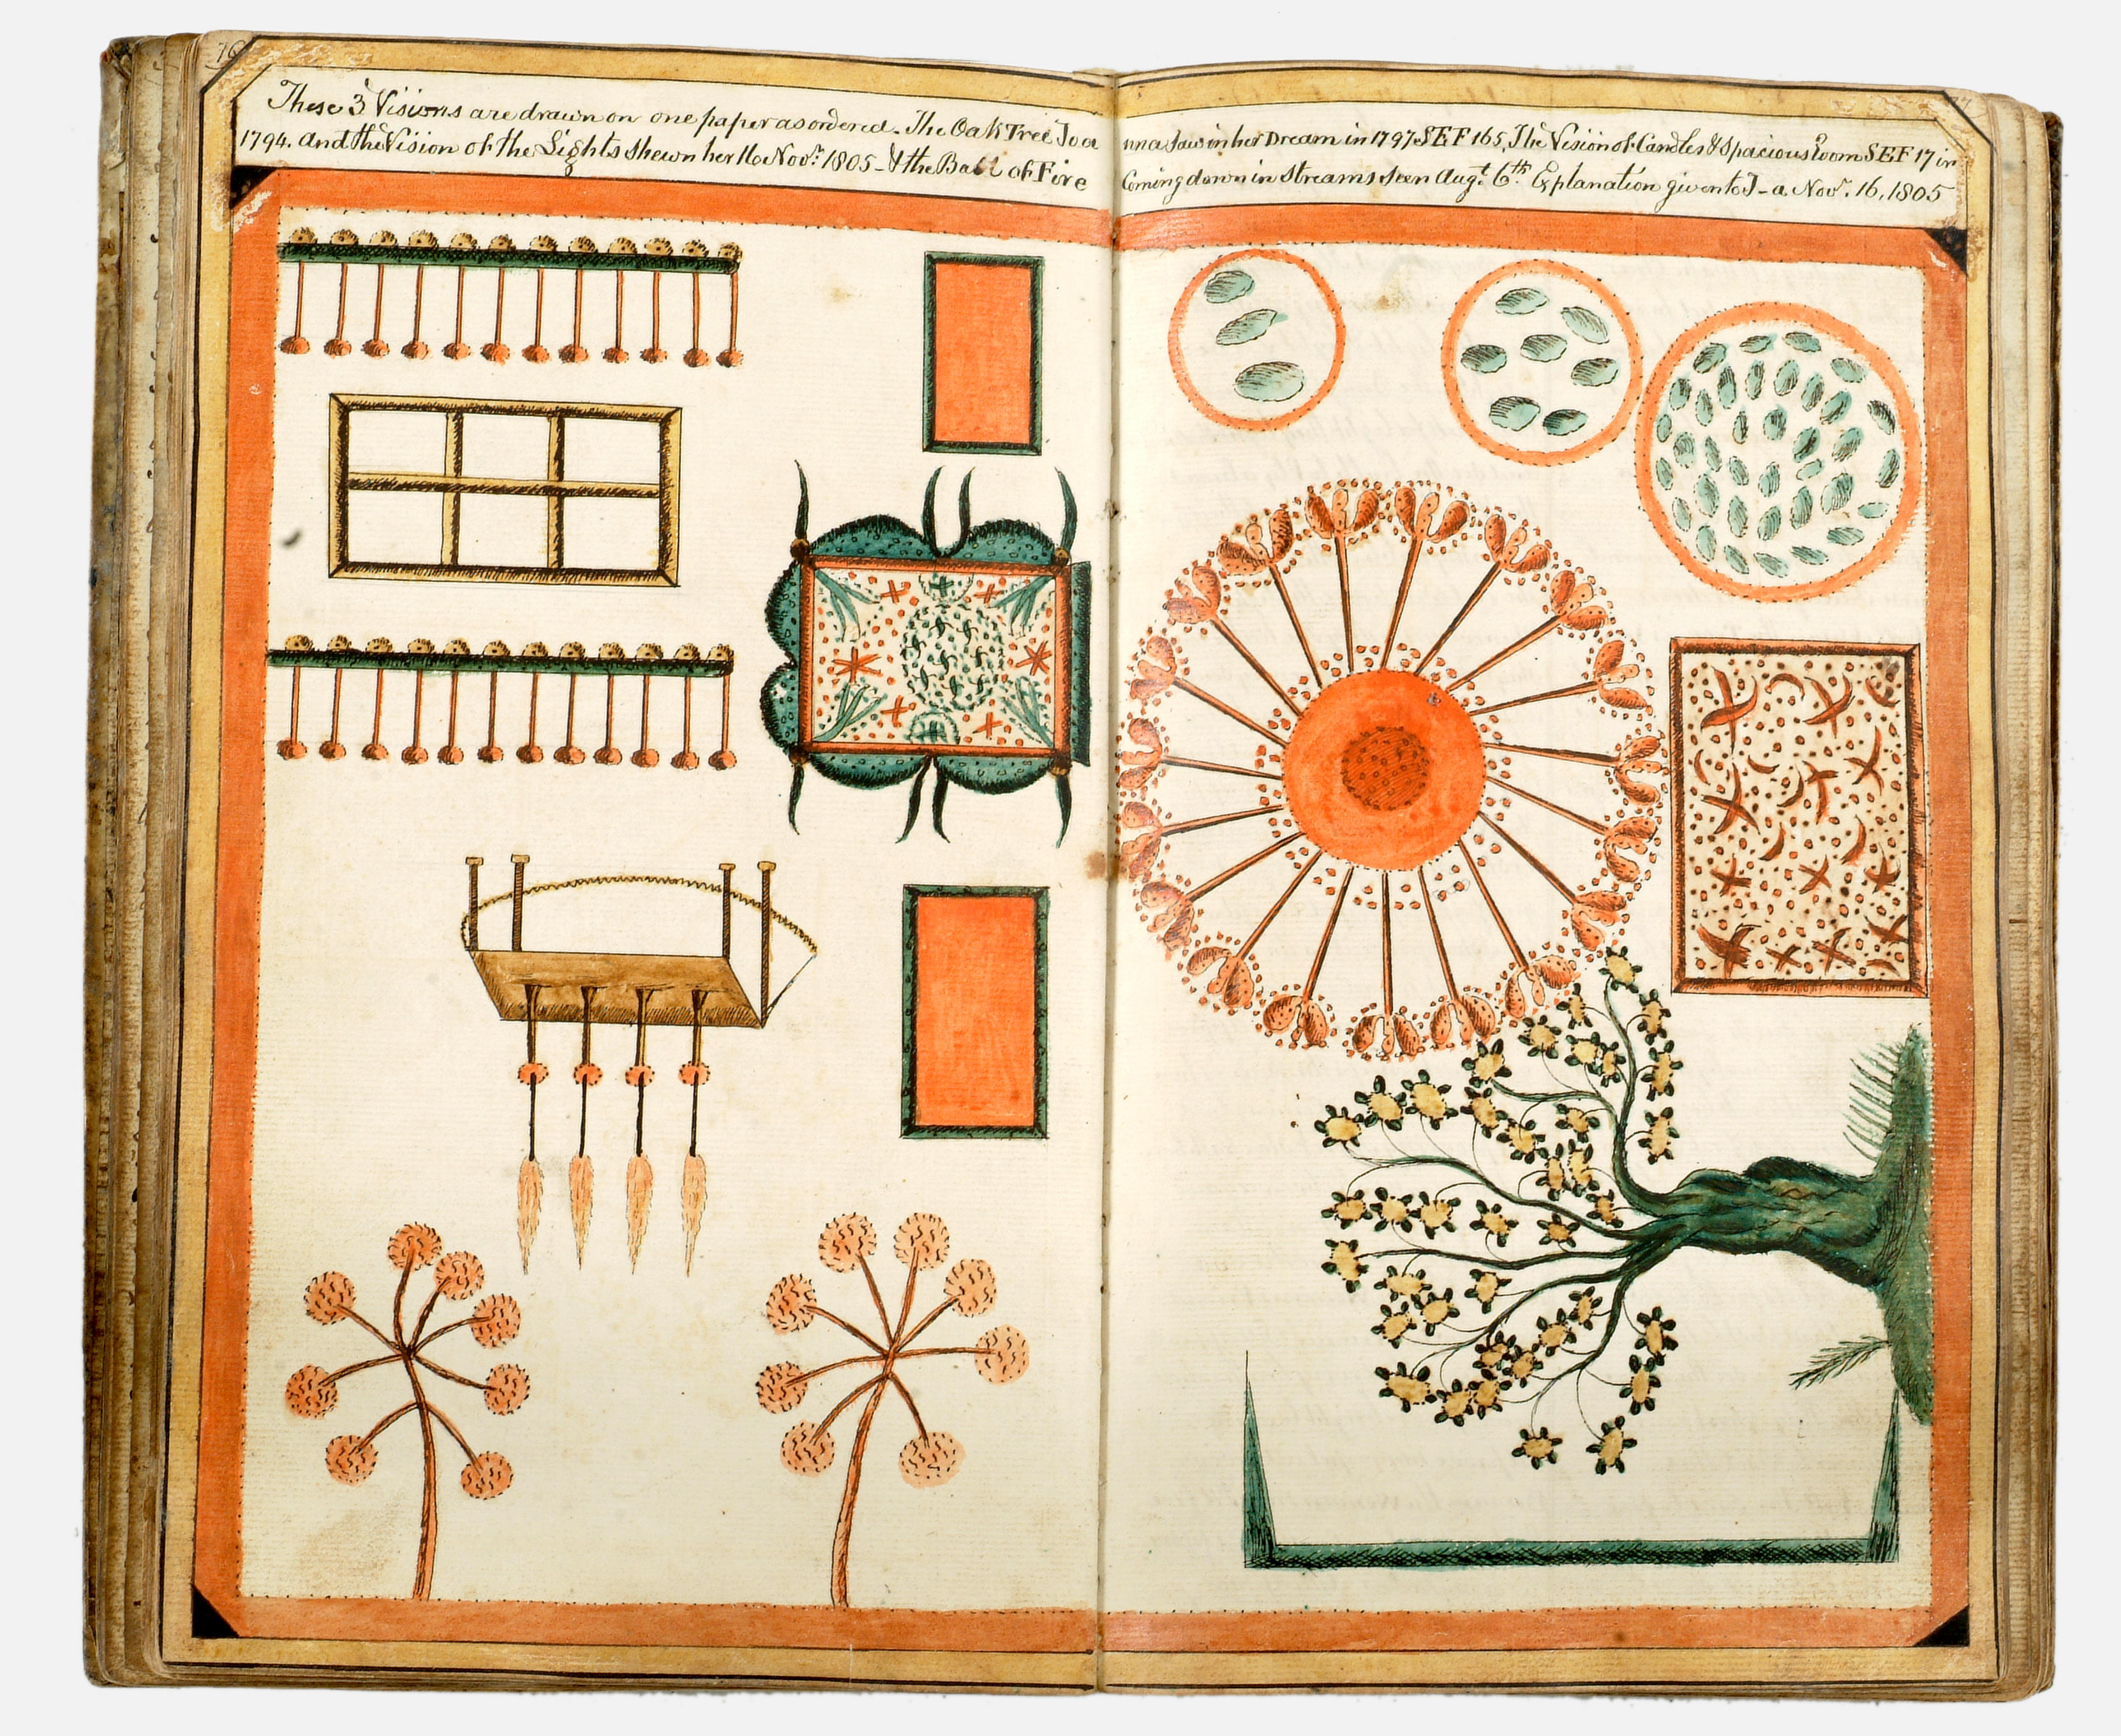 76
These 3 Visions are drawn on one paper as ordered. The Oak Tree Joanna Saw in her Dream in 1797 SEF 165, The Vision of Candles & Spacious room SEF 17 in
1794. and the Vision of the Lights shewn her 16 Novr. 1805 - & the Ball of Fire Coming down in streams seen Augt. 6th. Explanation given to J-a. Novr. 16, 1805